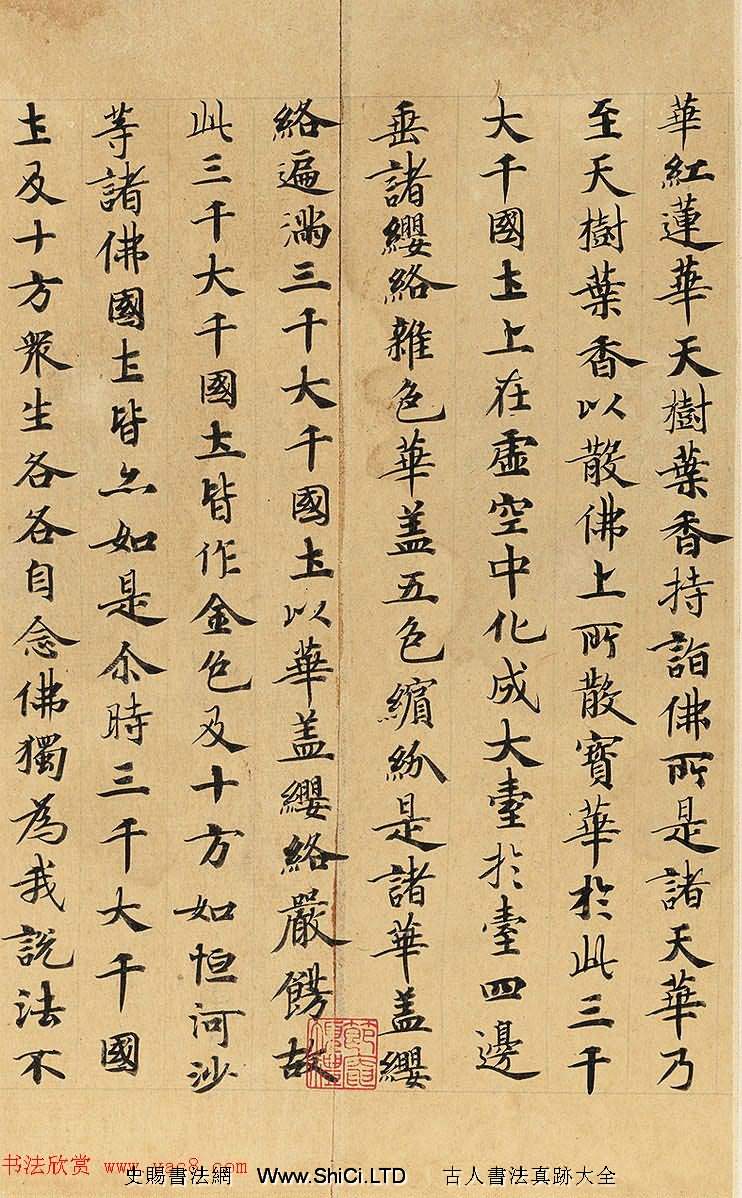 華紅蓮華天樹葉香持詣佛所是諸天華乃
至天樹葉香以散佛上所散寶華於此三千
大千國土上在虛空中化成大臺於臺四邊
垂諸纓絡雜色華盖五色繽紛是諸華盖纓
絡遍滿三千大千國土以華盖纓絡嚴餝故
此三千大千國土皆作金色及十方如恒河沙
等諸佛國土皆亦如是尒時三千大千國
土及十方眾生各各自念佛獨為我說法不
书法欣赏 www.yac8.com
史賜書法網 Www.ShiCi.LTD 古人書法真跡大全